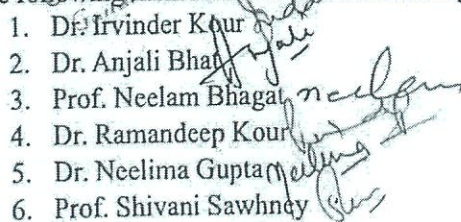 1. Dr. Irvinder Kour
2. Dr. Anjali Bhat Anjali
3. Prof. Neelam Bhagat Neelam
4. Dr. Ramandeep Kour
5. Dr. Neelima Gupta Neelima
6. Prof. Shivani Sawhney